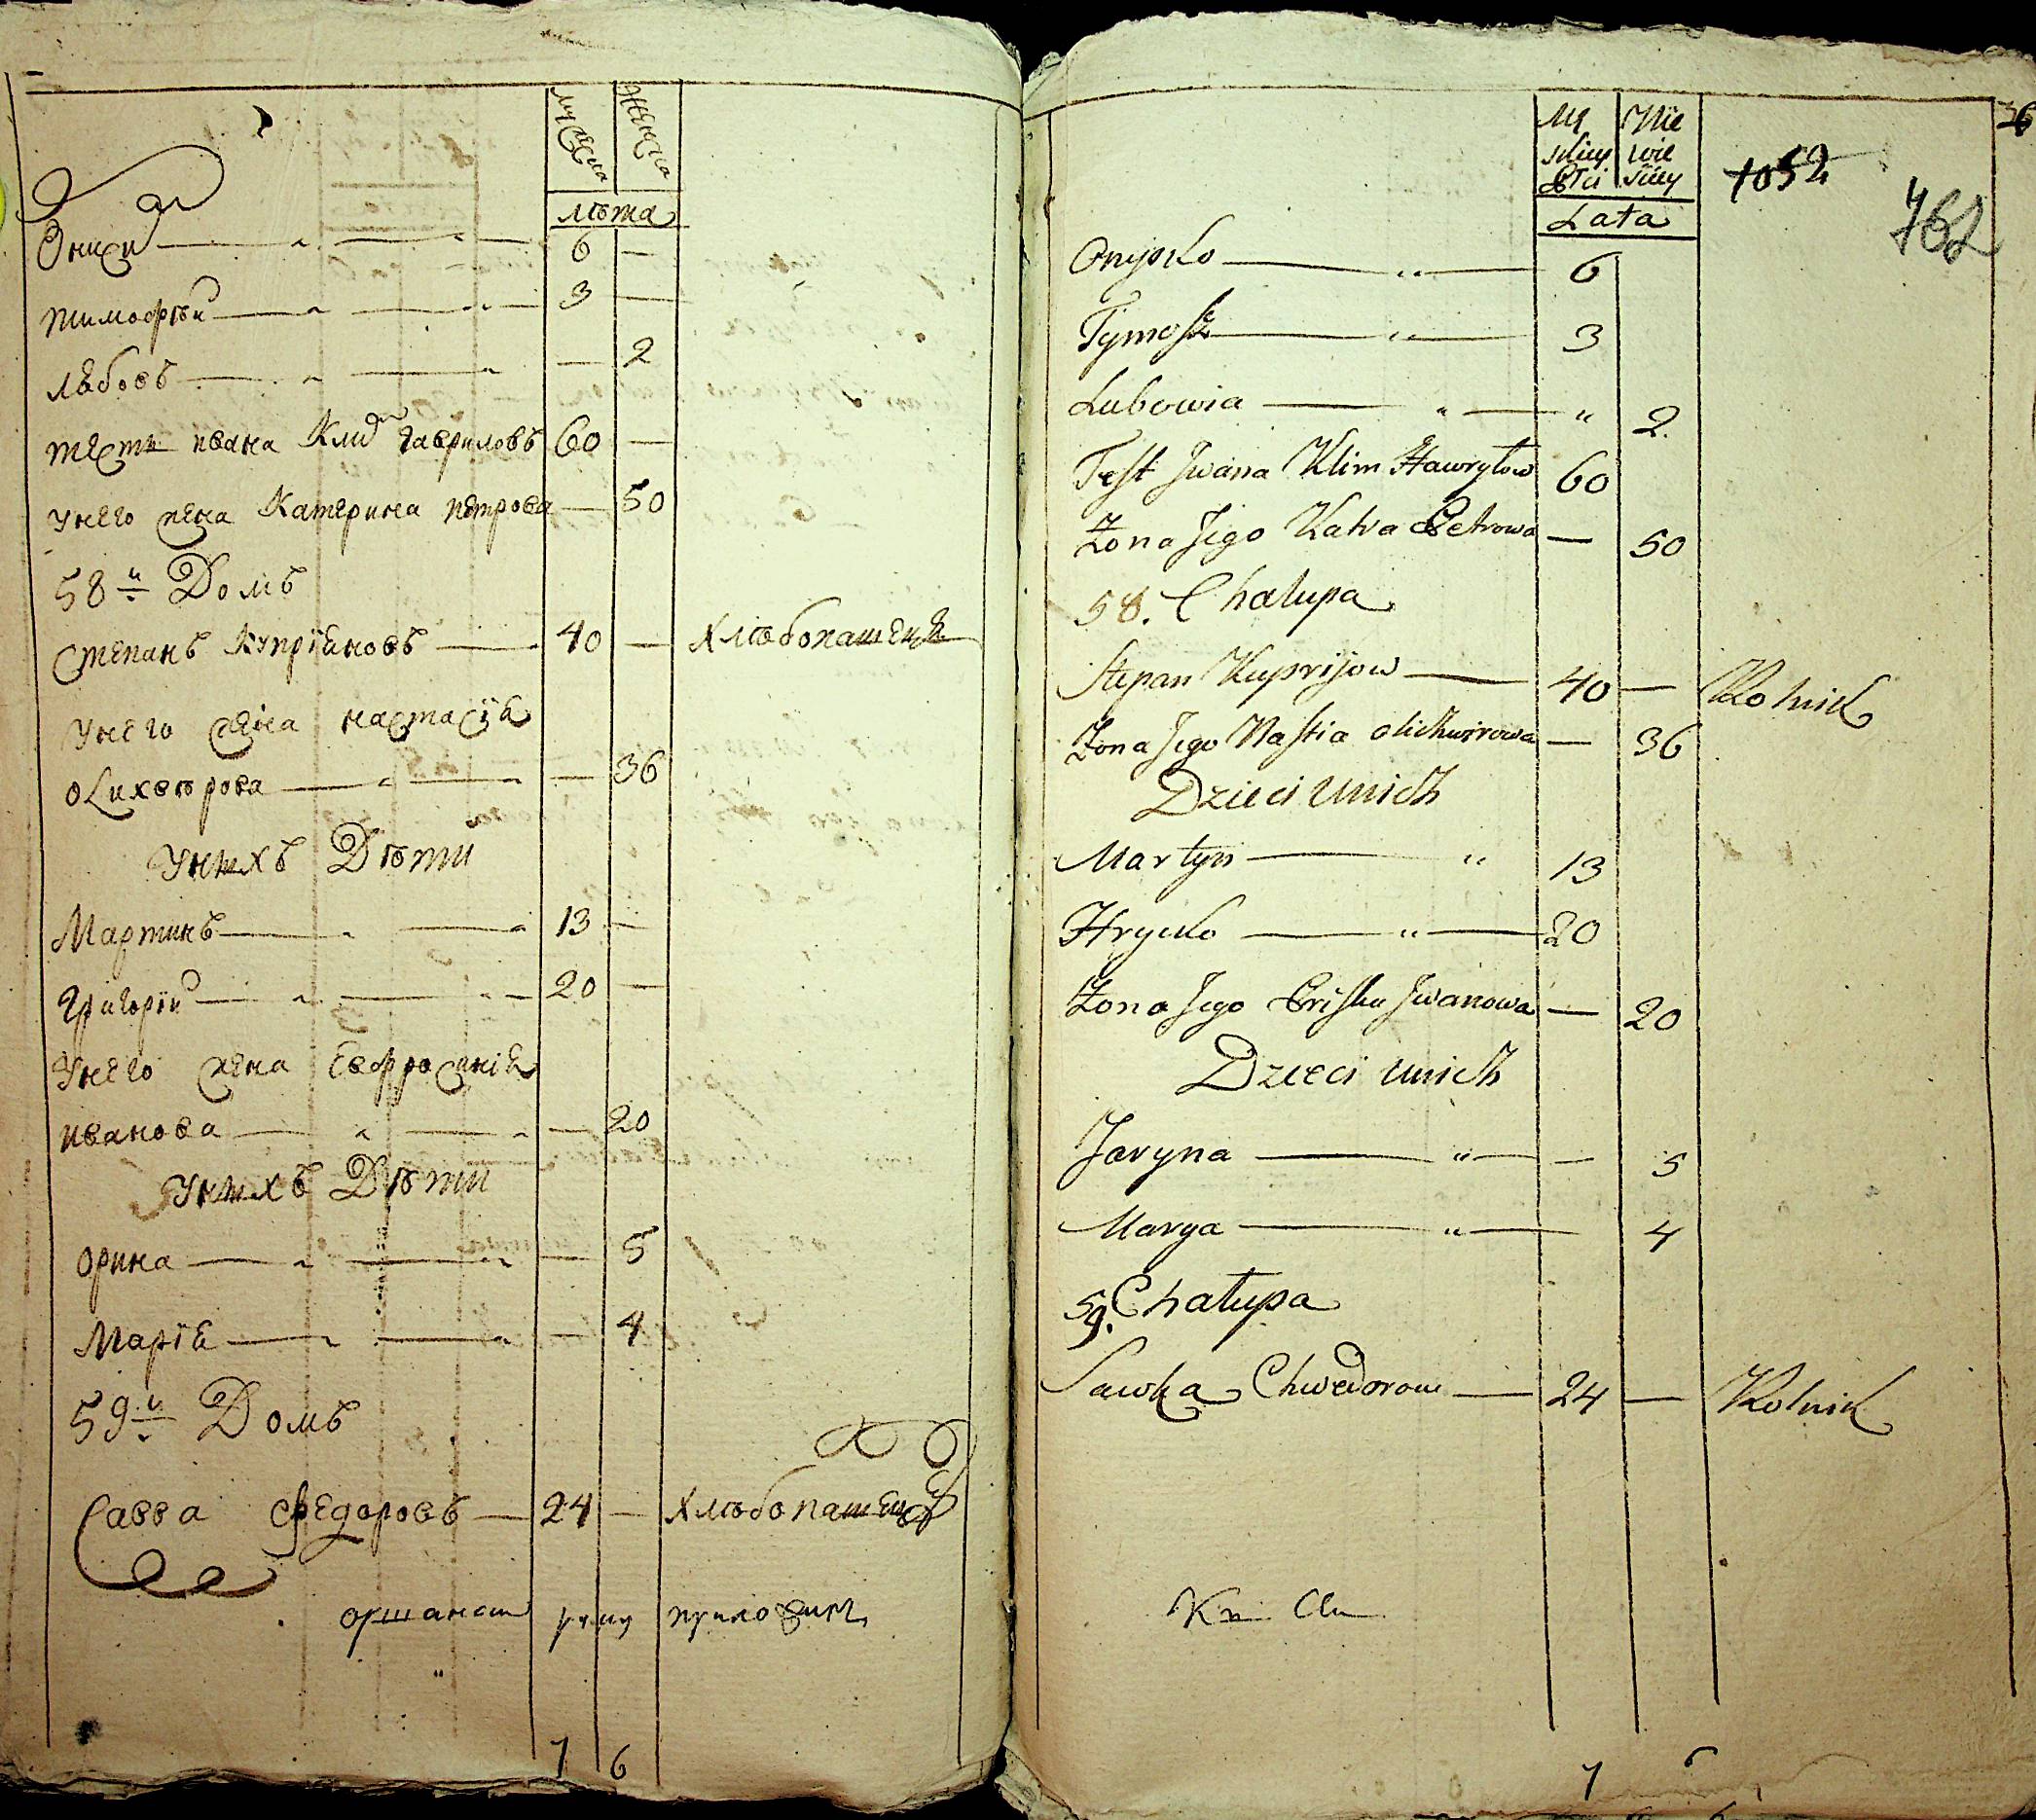 мужеска
женска
лѣта
Онисим 6 —
тимофѣи 3 —
любовь — 2
тесть ивана Клим гавриловъ 60 —
унего жена Катерина петрова — 50
58й Домъ
степанъ Куприяновъ 40 — хлѣбопашецъ
унего жена настасїя
олихвѣрова — 36
унихъ Дѣти
Мартинъ 13 —
григорїи 20 —
унего жена Евфросинїя
иванова — 20
унихъ Дѣти
орина — 5
Марїя — 4
59й Домъ
Савва федоровъ 24 — хлѣбопашецъ
7 6
36
1052
762
Lata
Onysko 6
Tymosz 3
Lubowia „ 2
Test Jwana Klim Hawryłow 60
Zona Jego Katra Petrowa — 50
58. Chałupa
Stepan Kupryjow 40 — Rolnik
Zona Jego Nastia olichwirowa — 36
Dzieci unich
Martyn 13
Hrycko 20
Zona Jego Jwanowa — 20
Dzieci unich
Jaryna — 5
Marya 4
59. Chałupa
Sawka Chwedorow 24 — Rolnik
7 6